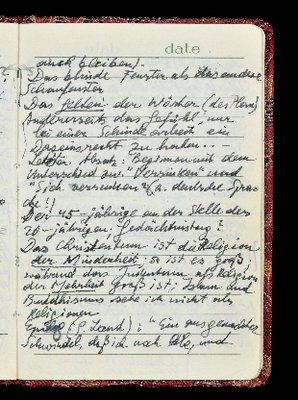 date
auch bleiben).
Das blinde Fenster als das andere
Schaufenster
Das Fehlen der Wörter (des Plans)
Andererseits das Gefühl, nur
bei einer Schinderarbeit ein
Daseinsrecht zu haben.. –
Letzter Absatz: Begonnen mit dem
Unterschied zw. "Verrinken" und
"Sich verrenken" (a. deutsche Spra-
che!)
Der 45-jährige an der Stelle des
20-jährigen: Gedächtnistag?
Das Christentum ist die Religion
der Minderheit: so ist es groß;
während das Judentum als Religion
der Mehrheit groß ist; Islam und
Buddhismus sehe ich nicht als
Religionen
(P. Zank): "Ein ausgemachter
Schwindel, daß ich noch lebe, und